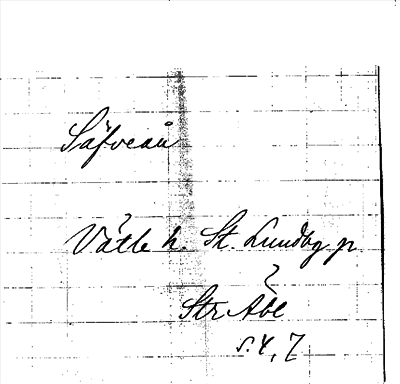 Säfveån
Vätle h. St. Lundby p
Str Abl
s. 4, 7